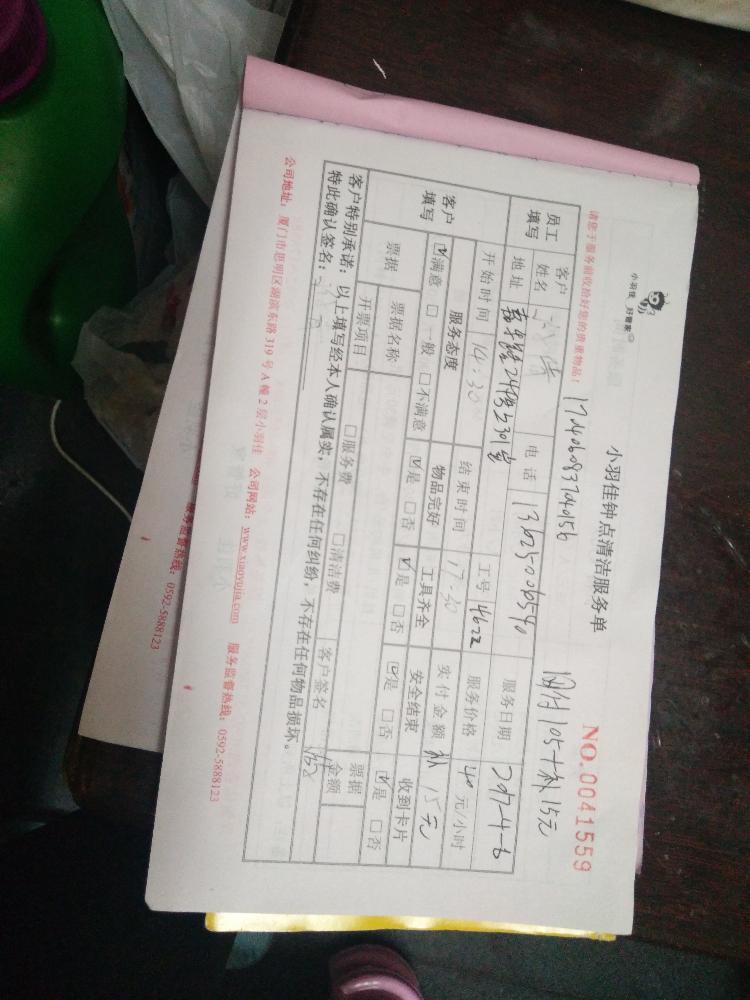 小羽佳 好管家
小羽佳钟点清洁服务单
NO.0041559
请您于服务前收拾好您的贵重物品!
网付105+补15元
员工填写
客户姓名
电话
服务日期 2017-4-6
地址
工号 4622
服务价格 40元/小时
客户填写
开始时间 14:30
结束时间 17:30
实付金额 补15元
服务态度 物品完好 工具齐全 安全结束 收到卡片
☑满意 □一般 □不满意 ☑是 □否 ☑是 □否 ☑是 □否 ☑是 □否
票据
票据名称
票据金额
开票项目 □服务费 □清洁费
客户签名
客户特别承诺:以上填写经本人确认属实,不存在任何纠纷,不存在任何物品损坏。
特此确认签名:
公司地址:厦门市思明区湖滨东路319号A幢2层小羽佳 公司网站:www.xiaoyujia.com 服务监督热线:0592-5888123
服务监督热线:0592-5888123